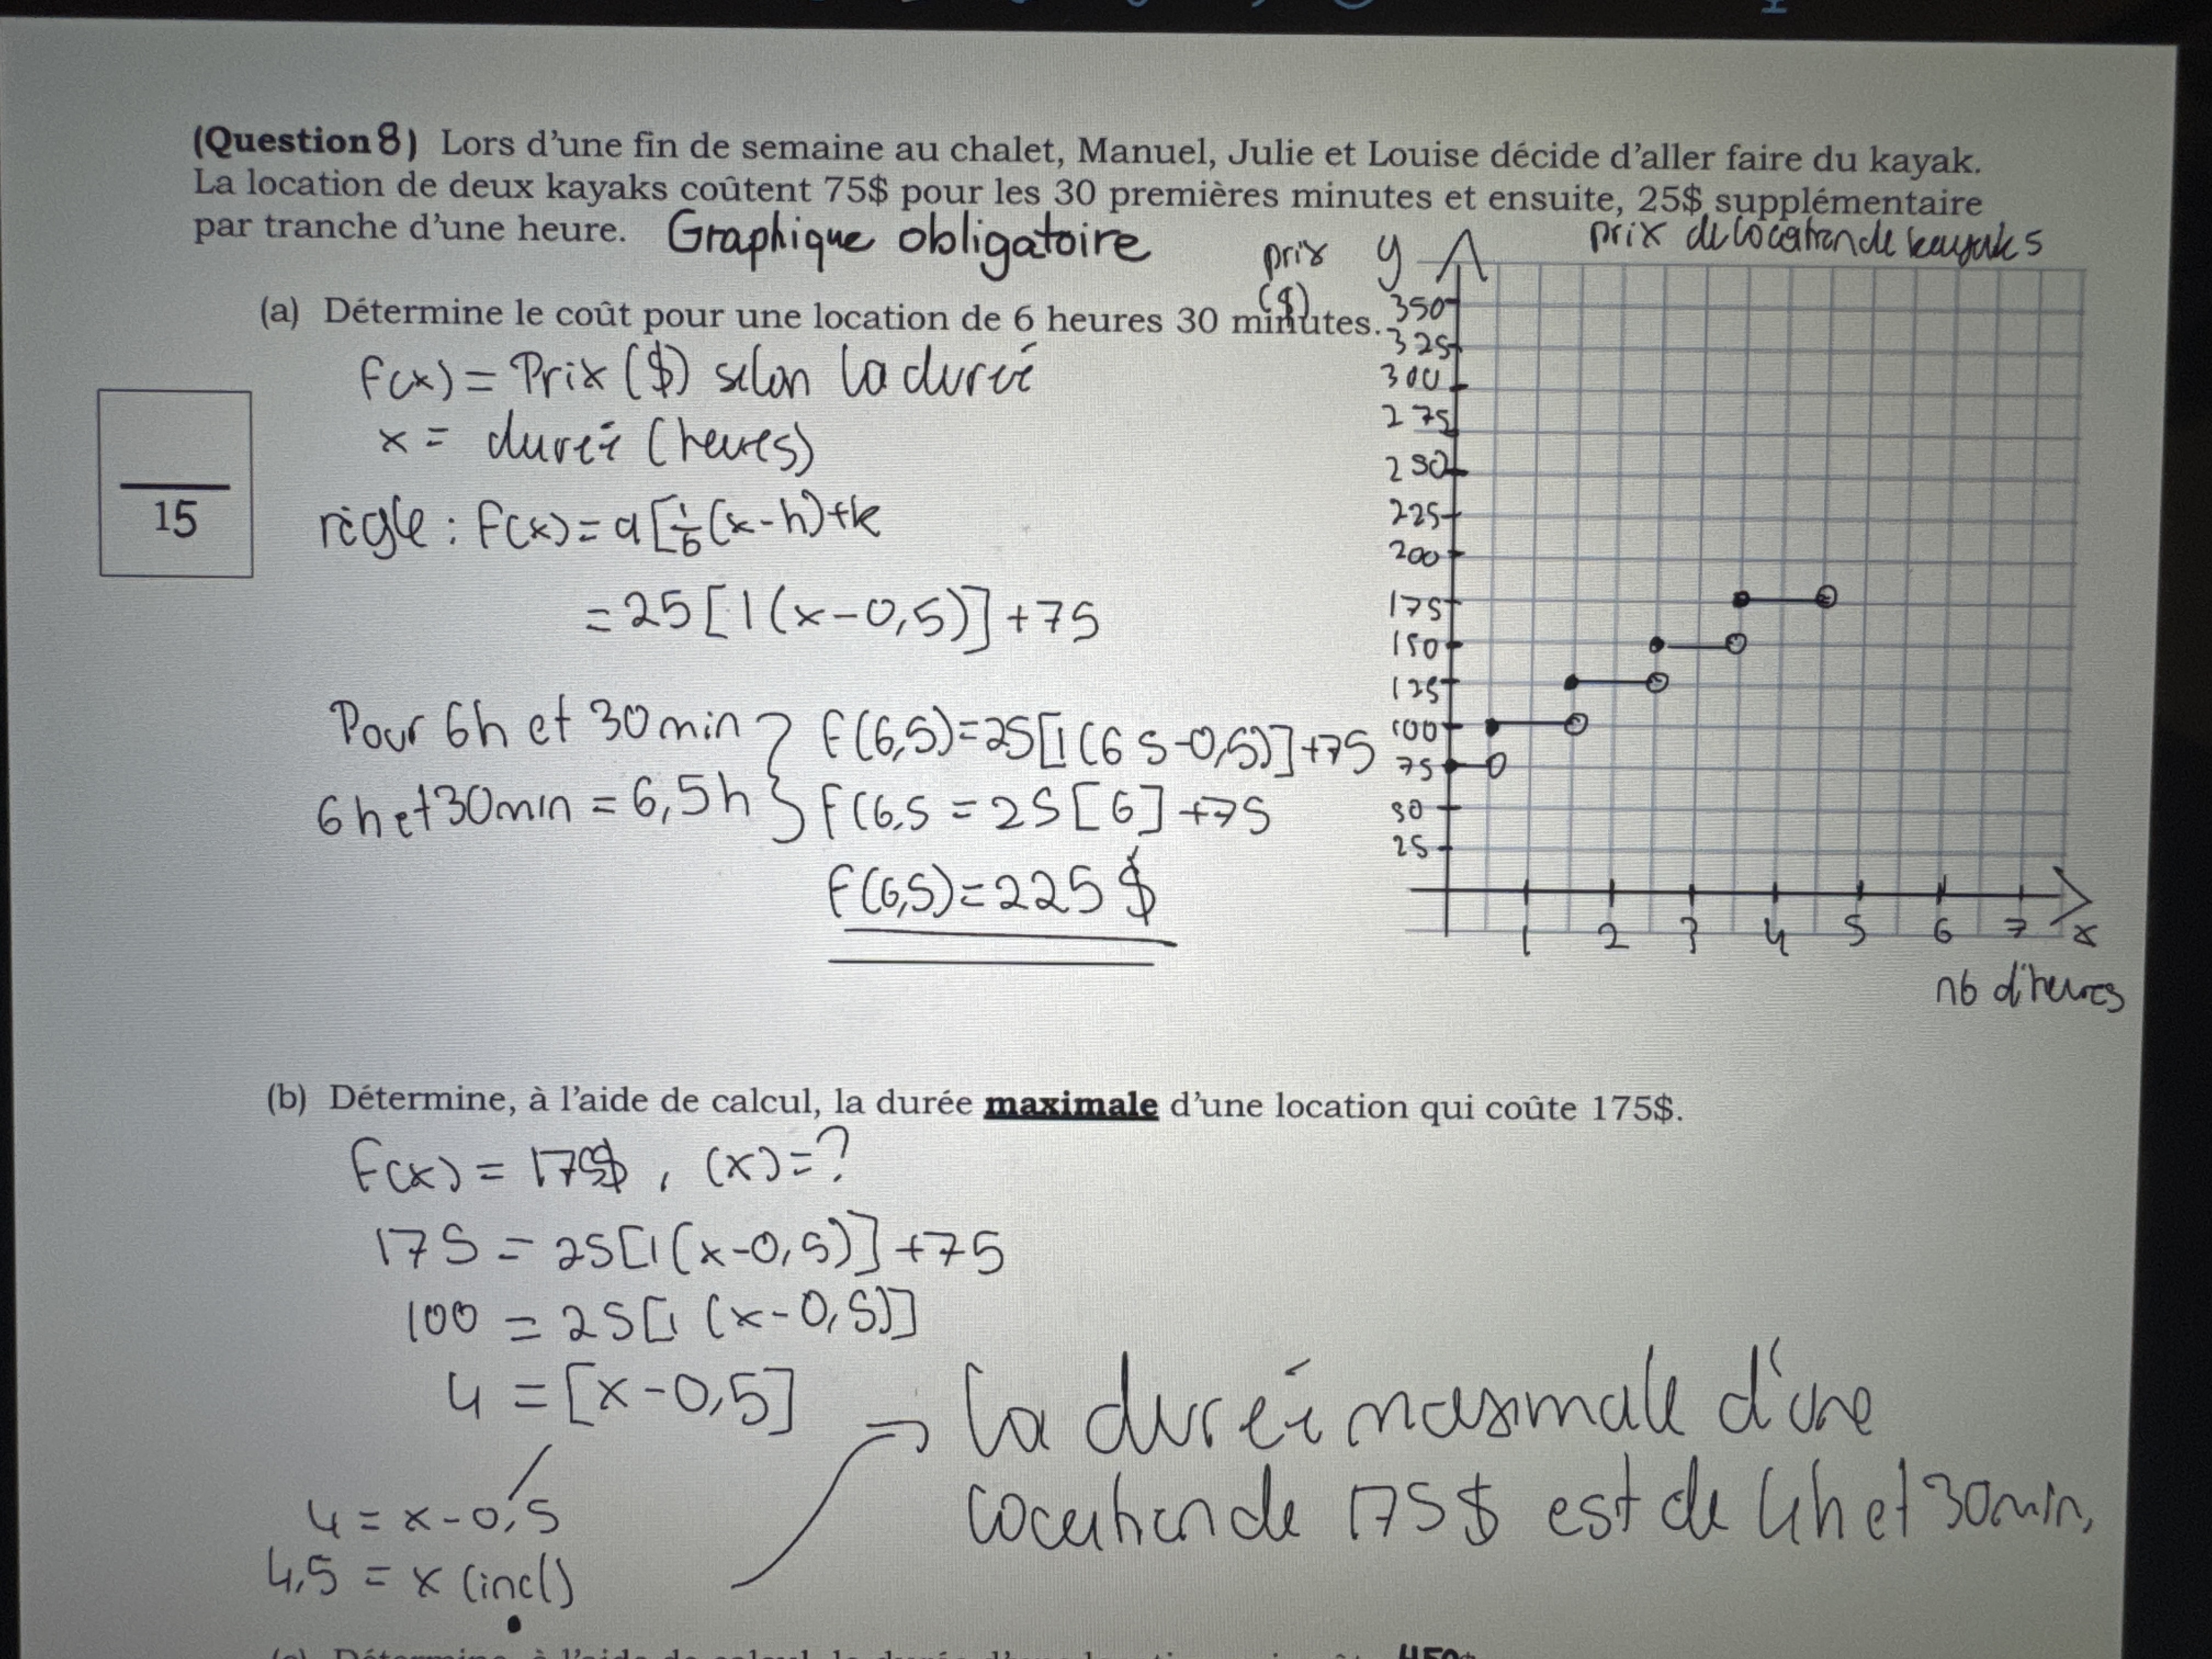 (Question 8) Lors d'une fin de semaine au chalet, Manuel, Julie et Louise décide d'aller faire du kayak.
La location de deux kayaks coûtent 75$ pour les 30 premières minutes et ensuite, 25$ supplémentaire
par tranche d'une heure. Graphique obligatoire
prix de location de kayaks
prix ($) y
(a) Détermine le coût pour une location de 6 heures 30 minutes.
f(x) = Prix ($) selon la durée
x = durée (heures)
15
règle : f(x) = a[1/b(x-h)+k
= 25[1(x-0,5)]+75
Pour 6h et 30 min } f(6,5)=25[1(6 5-0,5)]+75
6h et 30min = 6,5h } f(6,5 = 25[6]+75
f(6,5)=225 $
350
325
300
275
250
225
200
175
150
125
100
75
50
25
1 2 3 4 5 6 7 x
nb d'heures
(b) Détermine, à l'aide de calcul, la durée maximale d'une location qui coûte 175$.
f(x) = 175$, (x)=?
175 = 25[1(x-0,5)]+75
100 = 25[1(x-0,5)]
4 = [x-0,5]
4 = x-0,5
4,5 = x (incl)
→ la durée maximale d'une
location de 175$ est de 4h et 30min,